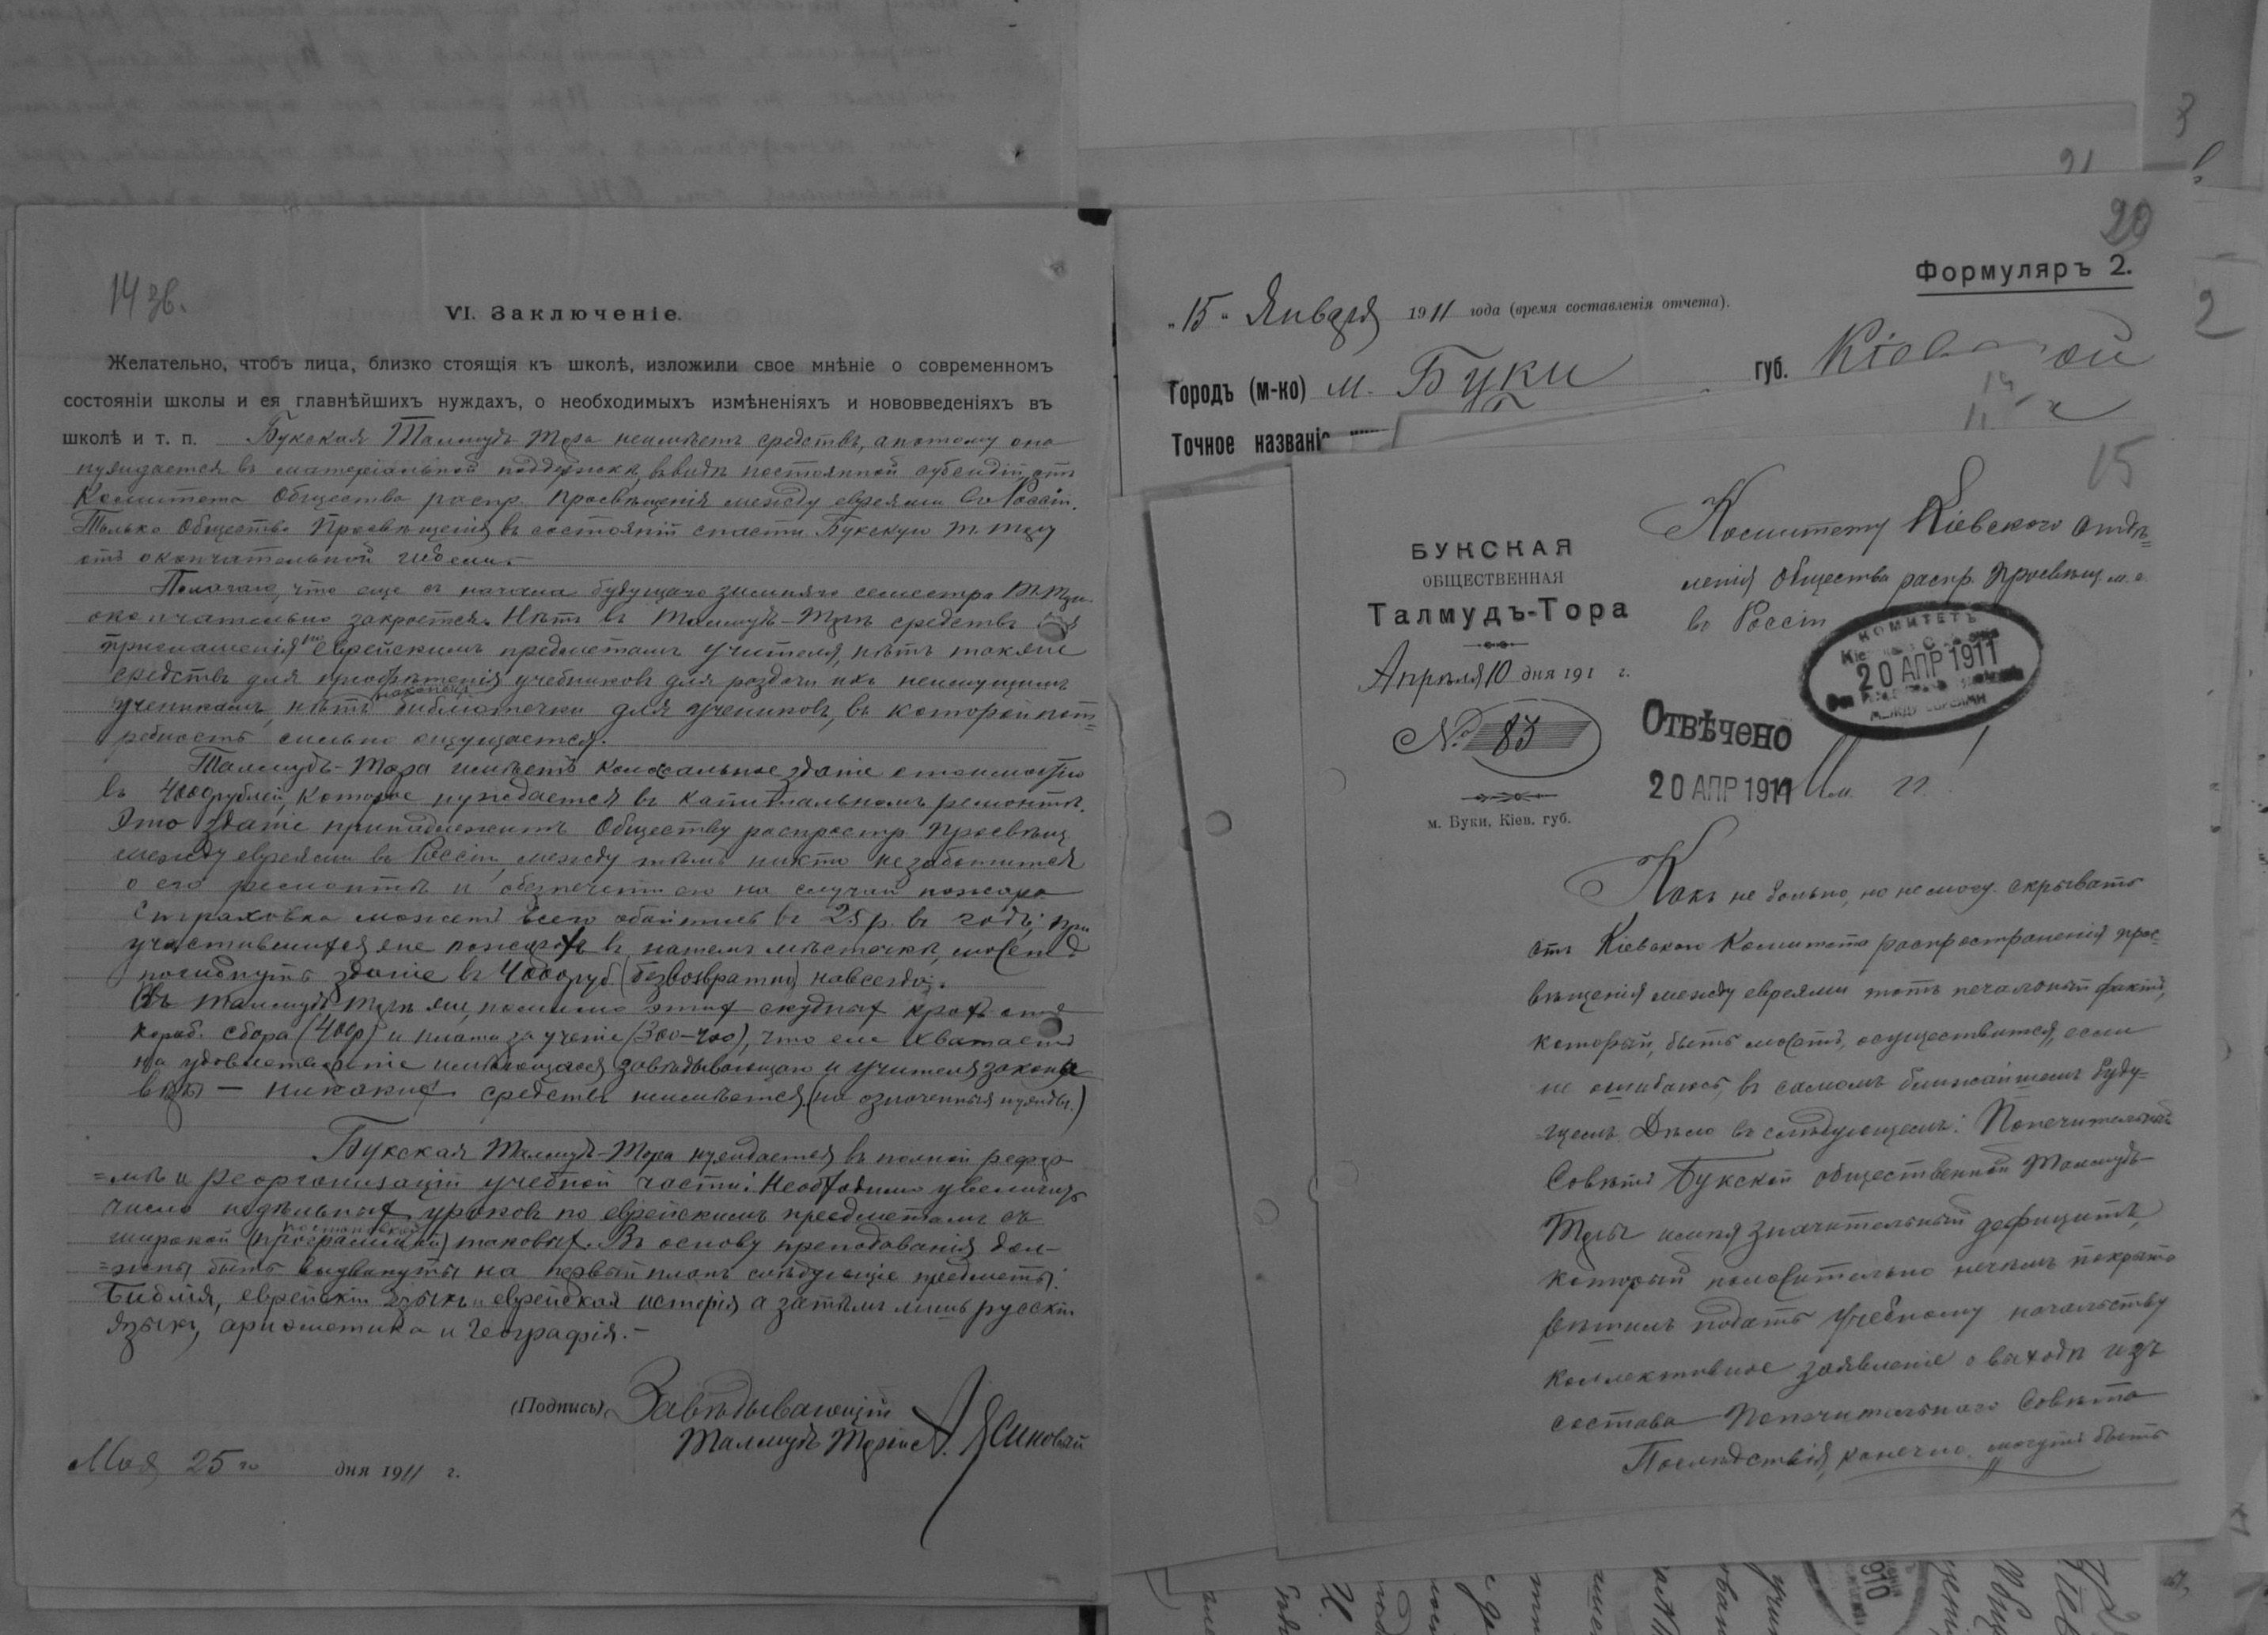 14 зв.
VI. Заключеніе.
Желательно, чтобъ лица, близко стоящія къ школѣ, изложили свое мнѣніе о современномъ
состояніи школы и ея главнѣйшихъ нуждахъ, о необходимыхъ измѣненіяхъ и нововведеніяхъ въ
школѣ и т. п. Букская Талмудъ Тора неимѣетъ средствъ, а потому она
нуждается въ матеріальной поддержкѣ, ввидѣ постоянной субсидіи отъ
Комитета Общества распр. Просвѣщенія между евреями въ Россіи.
Только Общество Просвѣщенія въ состояніи спасти Букскую Т. Тору
отъ окончательной гибели.
Полагаю, что еще съ начала будущаго зимняго семестра Т. Тора
окончательно закроется. Нѣтъ въ Талмудъ-Торѣ средствъ для
приглашенія по еврейскимъ предметамъ учителя, нѣтъ также
средствъ для пріобрѣтенія учебниковъ для раздачи ихъ неимущимъ
ученикамъ, нѣтъ наконецъ библіотечки для учениковъ, въ которой пот=
ребность сильно ощущается.
Талмудъ-Тора имѣетъ колосальное зданіе стоимостью
въ 4000 рублей, которое нуждается въ капитальномъ ремонтѣ.
Это зданіе принадлежитъ Обществу распростр. Просвѣщ.
между евреями въ Россіи, между тѣмъ никто не заботится
о его ремонтѣ и обезпечитъ его на случай пожара.
Страховка можетъ всего обойтись въ 25 р. въ годъ; при
участившихся же пожарахъ въ нашемъ мѣстечкѣ, можетъ
погибнуть зданіе въ 4000 руб. (безвозвратно) навсегда.
Въ Талмудъ Торѣ же, помимо этихъ скудныхъ крохъ отъ
короб. сбора (400 р) и платы за ученіе (300-400), что еле хватаетъ
на удовлетвореніе имѣющагося завѣдывающаго и учителя закона
вѣры — никакихъ средствъ неимѣется (на означенныя нужды.)
Букская Талмудъ-Тора нуждается въ полной рефор-
=мѣ и реорганизаціи учебной части: Необходимо увеличить
число недѣльныхъ уроковъ по еврейскимъ предметамъ съ
широкой (программой) постановкой таковыхъ. Въ основу преподаванія дол-
=жны быть выдвинуты на первый планъ слѣдующіе предметы:
Библія, еврейскій языкъ и еврейская исторія а затѣмъ лишь русскій
языкъ, ариѳметика и Географія.-
(Подпись) Завѣдывающій
Талмудъ Торы А. Ясиновый
Мая 25 го дня 1911 г.
21
20
Формуляръ 2.
„15“ Января 1911 года (время составленія отчета).
Городъ (м-ко) м. Буки губ. Кіевской
Точное названіе
15
БУКСКАЯ
ОБЩЕСТВЕННАЯ
Талмудъ-Тора
Апрѣля 10 дня 191 г.
№ 83
м. Буки, Кіев. губ.
Комитету Кіевскаго отдѣ=
ленія Общества распр. Просвѣщ. м. е.
въ Россіи
КОМИТЕТЪ
20 АПР 1911
МЕЖДУ ЕВРЕЯМИ
Отвѣчено
20 АПР 1911
Какъ не больно, но не могу скрывать
отъ Кіевскаго Комитета распространенія прос-
вѣщенія между евреями тотъ печальный фактъ,
который, быть можетъ, осуществится, если
не ошибаюсь, въ самомъ ближайшемъ буду=
=щемъ. Дѣло въ слѣдующемъ: Попечительный
Совѣтъ Букской общественной Талмудъ-
Торы имѣя значительный дефицитъ,
который положительно нечѣмъ покрыть
рѣшилъ подать Учебному начальству
коллективное заявленіе о выходѣ изъ
состава Попечительнаго Совѣта
Послѣдствія, конечно, могутъ быть